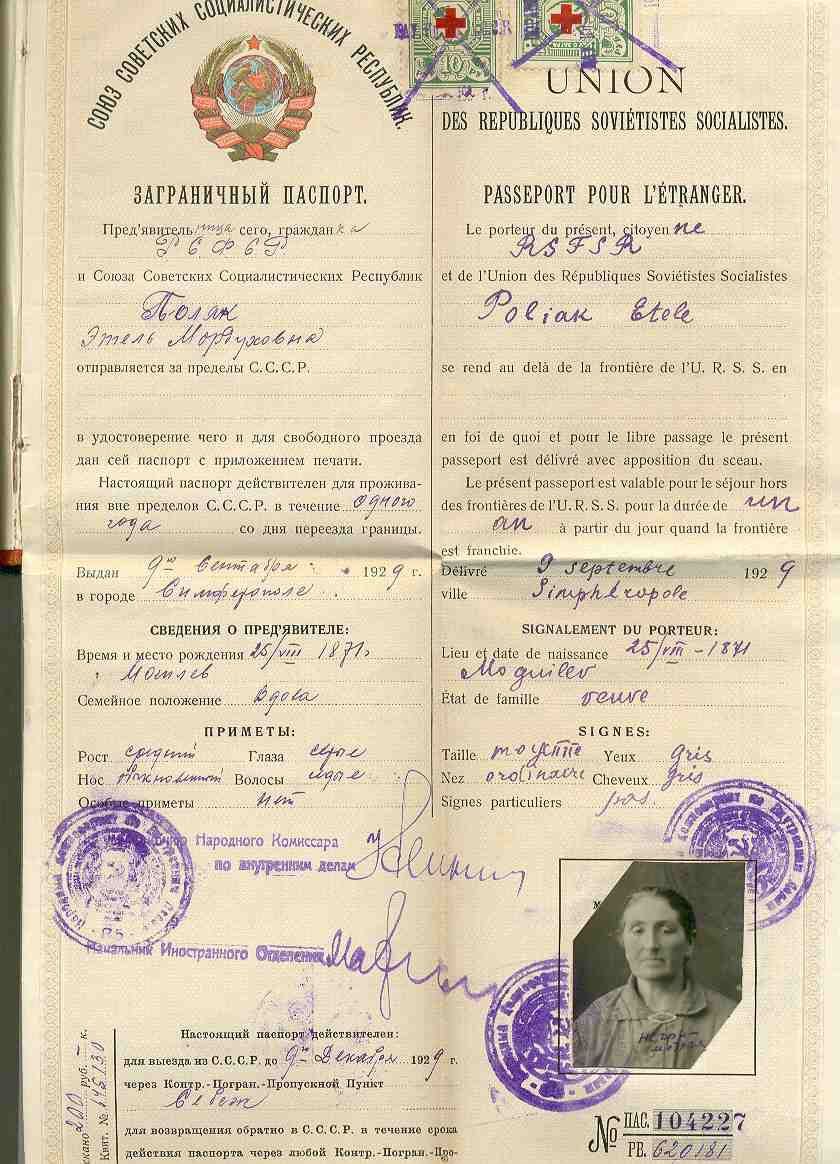 СОЮЗ СОВЕТСКИХ СОЦИАЛИСТИЧЕСКИХ РЕСПУБЛИК.
ЗАГРАНИЧНЫЙ ПАСПОРТ.
Пред'явительница сего, гражданка
РСФСР
и Союза Советских Социалистических Республик
Поляк
Этель Мордуховна
отправляется за пределы С.С.С.Р.
в удостоверение чего и для свободного проезда
дан сей паспорт с приложением печати.
Настоящий паспорт действителен для прожива-
ния вне пределов С.С.С.Р. в течение одного
года со дня переезда границы.
Выдан 9го Сентября 1929 г.
в городе Симферополе
СВЕДЕНИЯ О ПРЕД'ЯВИТЕЛЕ:
Время и место рождения 25/VIII 1871г
Могилев
Семейное положение Вдова
ПРИМЕТЫ:
Рост средний Глаза серые
Нос Обыкновенный Волосы седые
Особые приметы нет
Народного Комиссара
по внутренним делам
Начальник Иностранного Отделения
Настоящий паспорт действителен:
для выезда из С.С.С.Р. до 9го Декабря 1929 г.
через Контр.-Погран.-Пропускной Пункт
Себеж
для возвращения обратно в С.С.С.Р. в течение срока
действия паспорта через любой Контр.-Погран.-Про-
200 руб. — к.
Квит. №
10
UNION
DES REPUBLIQUES SOVIÉTISTES SOCIALISTES.
PASSEPORT POUR L'ÉTRANGER.
Le porteur du présent, citoyenne
RSFSR
et de l'Union des Républiques Soviétistes Socialistes
Poliak Etele
se rend au delà de la frontière de l'U. R. S. S. en
en foi de quoi et pour le libre passage le présent
passeport est délivré avec apposition du sceau.
Le présent passeport est valable pour le séjour hors
des frontières de l'U. R. S. S. pour la durée de un
an à partir du jour quand la frontière
est franchie.
Délivré 9 septembre 1929
ville Simphéropole
SIGNALEMENT DU PORTEUR:
Lieu et date de naissance 25/VIII - 1871
Moguilev
État de famille veuve
SIGNES:
Taille moyenne Yeux gris
Nez ordinaire Cheveux gris
Signes particuliers pas.
№ ПАС. 104227
РЕ. 620181